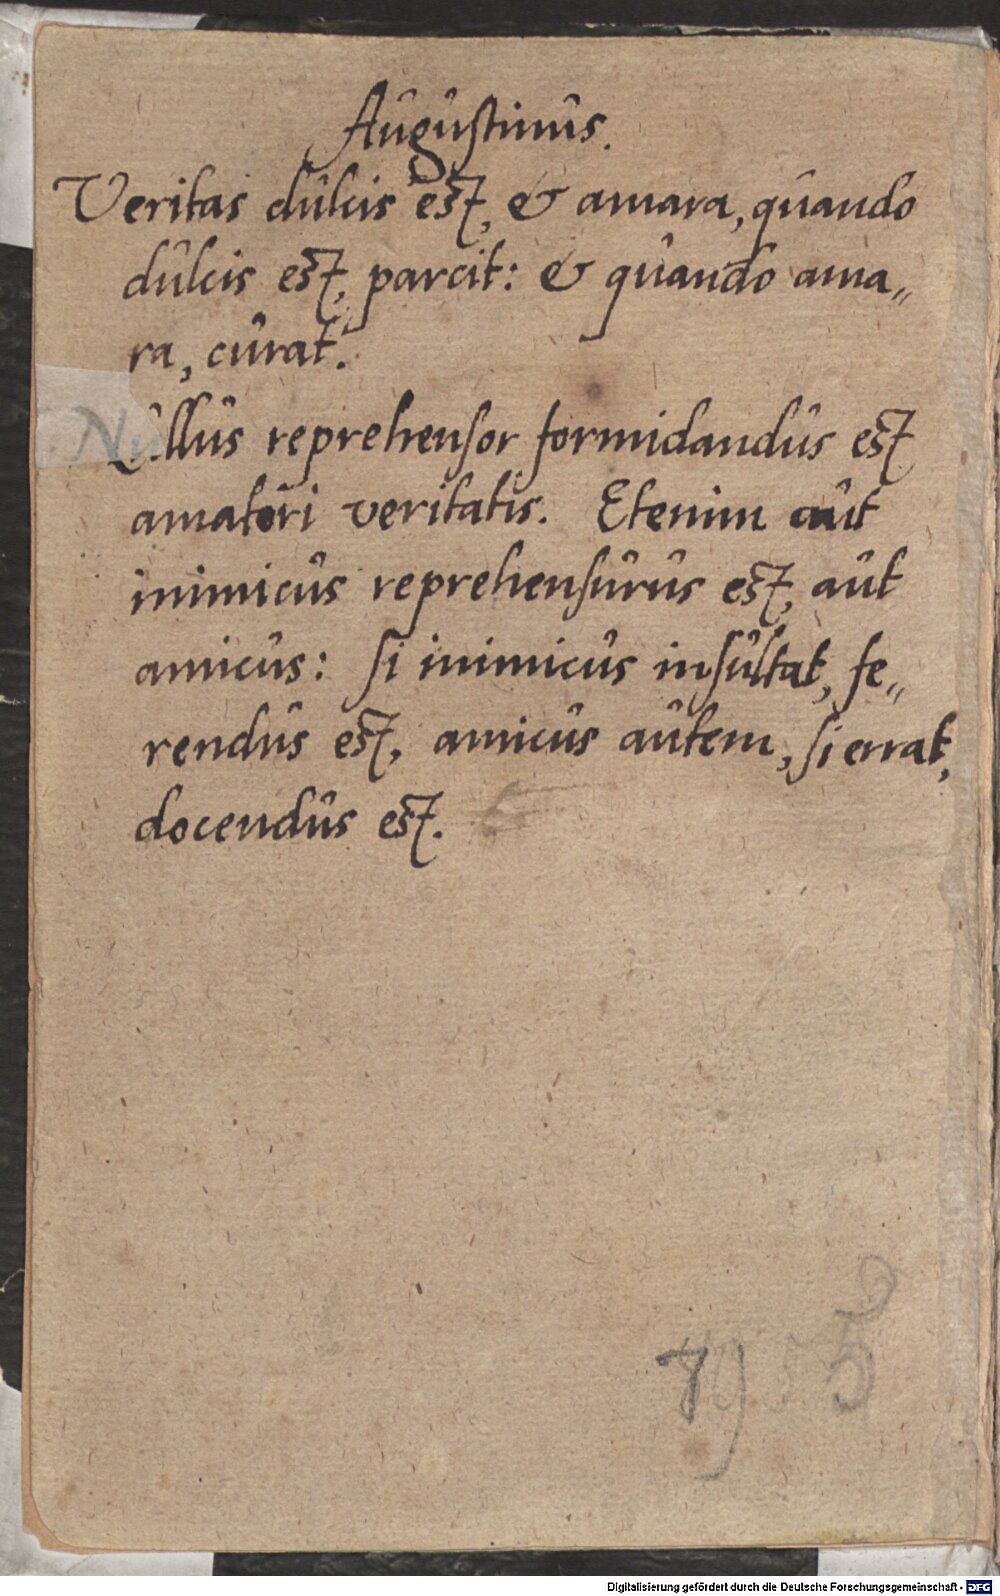 Augustinus.
Veritas dulcis est, & amara, quando
dulcis est, parcit: & quando ama„
ra, curat.
Nullus reprehensor formidandus est
amatori veritatis. Etenim aut
inimicus reprehensurus est, aut
amicus: si inimicus insultat, fe„
rendus est, amicus autem, si errat,
docendus est.
Digitalisierung gefördert durch die Deutsche Forschungsgemeinschaft - DFG